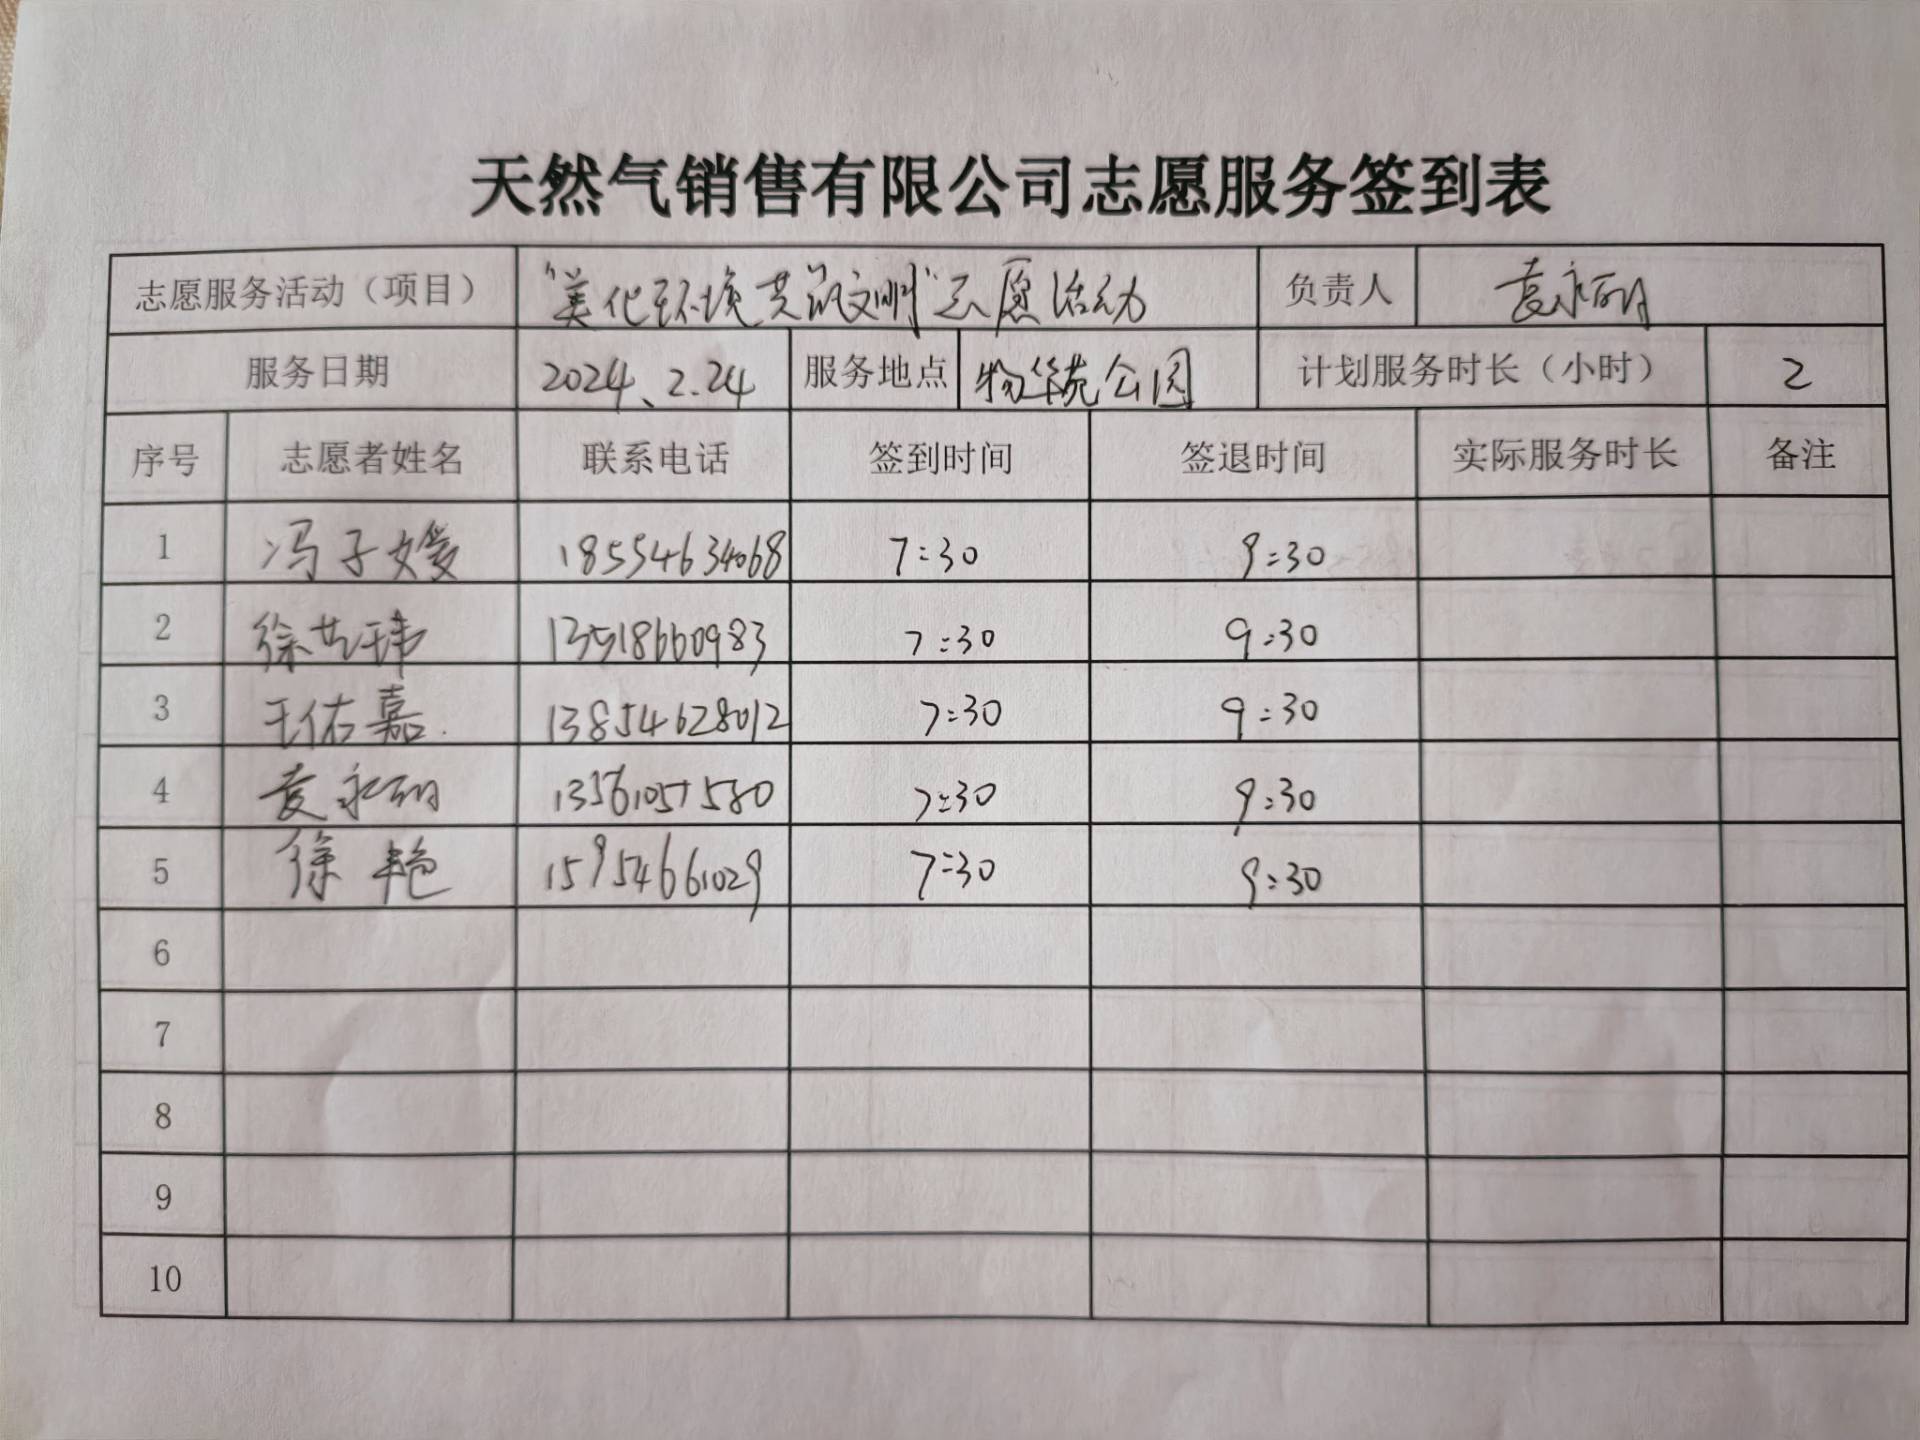 天然气销售有限公司志愿服务签到表
志愿服务活动（项目） "美化环境共筑文明"志愿活动 负责人 袁永明
服务日期 2024、2.24 服务地点 物华苑公园 计划服务时长（小时） 2
序号 志愿者姓名 联系电话 签到时间 签退时间 实际服务时长 备注
1 冯子媛 18554634068 7:30 9:30
2 徐艺玮 13518660983 7:30 9:30
3 王佑嘉 13854628012 7:30 9:30
4 袁永明 13561057580 7:30 9:30
5 徐艳 15954661029 7:30 9:30
6
7
8
9
10